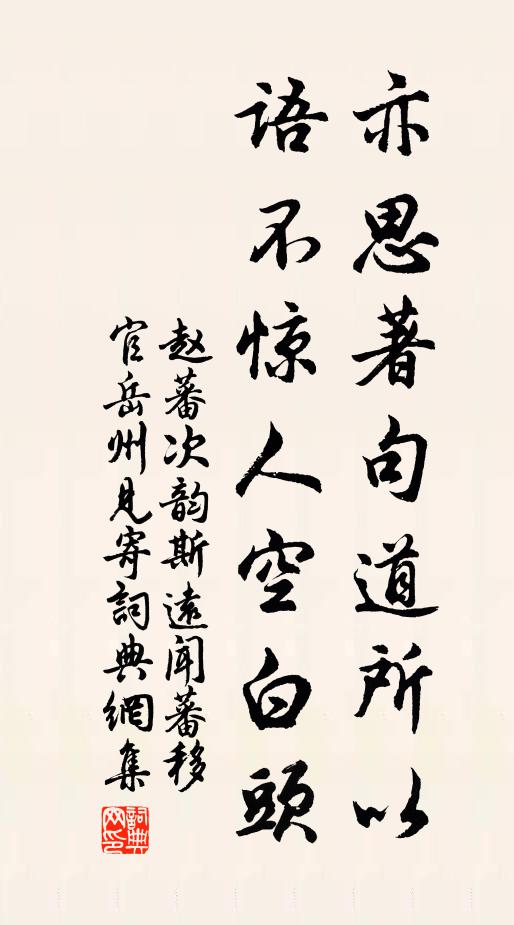 亦思著句道所以
语不惊人空白頭
赵蕃次韵斯遠闻蕃移
官岳州见寄詞典網集
詞典
网印